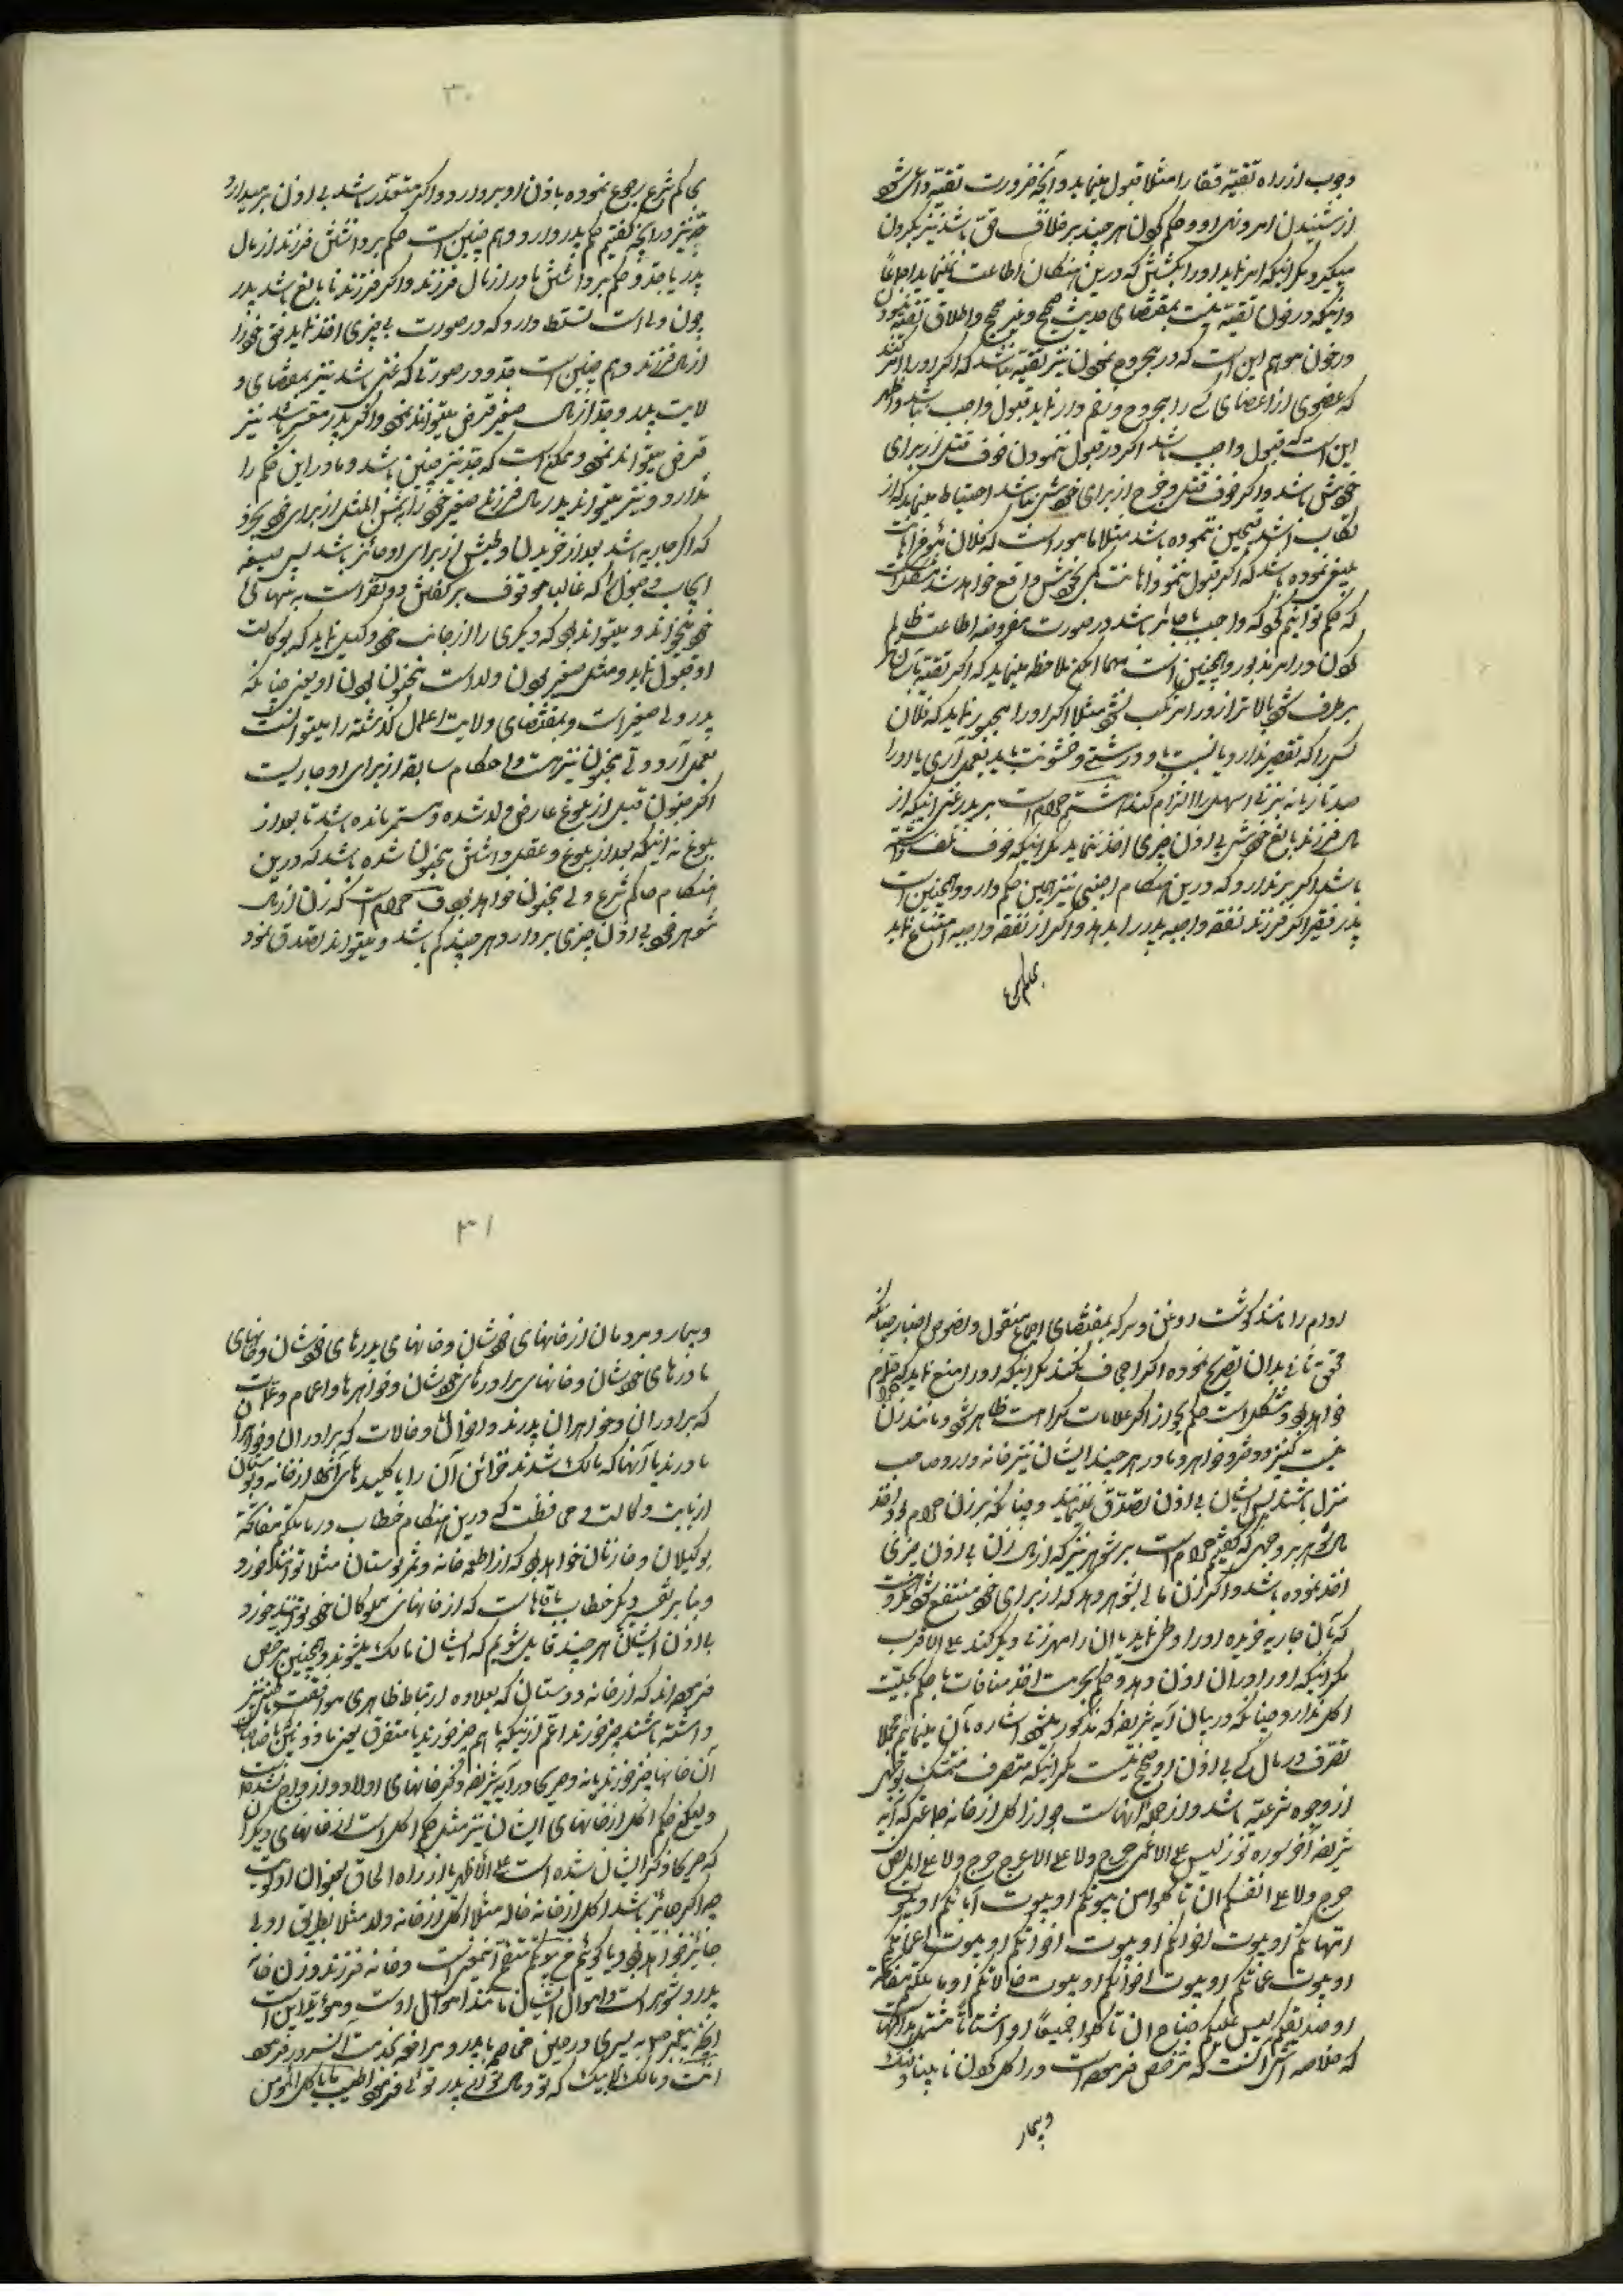 وجوب از راه تقیه قضا را مثلا قبول مینماید و آنچه ضرورت تقیه داعی شود
از شنیدن امر و نهی او و حکم کردن هر چند بر خلاف حق باشد نیز بگردن
میگیرد مگر اینکه امر نماید او را بکشتن که درین هنگام اطاعت نمینماید اجماعاً
و اینکه در خون تقیه نیست بمقتضای حدیث صحیح و غیر صحیح و اطلاق تقیه
در خون موهم این است که در مجروح نمودن نیز تقیه نباشد که اگر او را امر کنند
که عضوی از اعضای کسی را مجروح و زخم دار نماید قبول واجب نباشد و اظهر
این است که قبول واجب باشد اگر در قبول ننمودن خوف قتل از برای
خودش باشد و اگر خوف قتل و جرح از برای خودش نباشد احتیاط مینماید که از
که حکم توانیم کرد که واجب یا جایز باشد در صورت مفروضه اطاعت ظالم
کردن در امر مذبور و همچنین است مهما امکن ملاحظه مینماید که اگر تقیه بآسان‌تر
بر طرف شود بالاتر از او را مرتکب نشود مثلا اگر او را مجبور نماید که فلان
کس را که تقصیر ندارد یا نسبت باو درشتی و خشونت باید بعمل آری یا او را
صد تازیانه بزنی اسهل را التزام کند هشتم حرام است بر پدر غنی اینکه از
مال فرزند بالغ خودش بی اذن چیزی اخذ نماید مگر اینکه خوف تلف داشته
باشد اگر بر ندارد که درین هنگام اجنبی نیز همین حکم دارد و همچنین است
پدر فقیر اگر فرزند نفقه واجبه پدر را بدهد و اگر از نفقه واجبه امتناع نماید
بحاکم شرع
۳۰
بحاکم شرع رجوع نموده باذن او بردارد و اگر متعذر باشد بی اذن بر میدارد
جد نیز در آنچه گفتیم حکم پدر دارد و هم چنین است حکم برداشتن فرزند از مال
پدر یا جد و حکم برداشتن مادر از مال فرزند و اگر فرزند نا بالغ باشد پدر
چون ولی است تسلط دارد که در صورت بی چیزی اخذ نماید حق خود را
از مال فرزند و هم چنین است جد و در صورتی که غنی باشد نیز بمقتضای و
لایت پدر و جد از مال صغیر قرض میتوانند نمود و اگر پدر معسر باشد نیز
قرض میتواند نمود و ممکن است که جد نیز چنین باشد و مادر این حکم را
ندارد و نیز میتواند پدر مال فرزند صغیر خود را بثمن المثل از برای خود بخرد
که اگر جاریه باشد بعد از خریدن وطیش از برای او جائز باشد پس صیغه
ایجاب و قبول را که غالبا موقوف بر گفتن دو نفر است به تنهائی
خود میخواند و میتواند بود که دیگری را از جانب خود وکیل نماید که بوکالت
او قبول نماید و مثل صغیر بودن ولد است مجنون بودن او یعنی چنانکه
پدر ولی صغیر است و بمقتضای ولایت اعمال گذشته را میتوانست
بعمل آرد ولی مجنون نیز هست و احکام سابقه از برای او جاریست
اگر جنون قبل از بلوغ عارض ولد شده و مستمر مانده باشد تا بعد از
بلوغ نه اینکه بعد از بلوغ و عقل داشتن مجنون شده باشد که درین
هنگام حاکم شرع ولی مجنون خواهد بود حرام است که زن از مال
شوهر خود بی اذن چیزی بردارد هر چند کم باشد و میتواند تصدق نمود
ادام را مانند گوشت روغن و سرکه بمقتضای اجماع منقول و نصوص اخبار چنانکه
محقق ثانی بدان تصریح نموده اگر اجحاف نکند مگر اینکه او را منع نماید که حرام
خواهد بود و مشکل است حکم بجواز اگر علامات کراهت ظاهر شود و مانند زن
نیست کنیز و دختر و خواهر و مادر هر چند ایشان نیز خانه دار و صاحب
منزل باشند پس ایشان بی اذن تصدق ننمایند و چنانکه بر زن حرام بود اخذ
مال شوهر بر وجهی که گفتیم حرام است بر شوهر نیز که از مال زن بی اذن چیزی
اخذ نموده باشد و اگر زن مالی بشوهر دهد که از برای خود منتفع شود مکروهست
که بآن جاریه خریده او را وطی نماید یا آن را مهر زنی دیگر کند علی الاقرب
مگر اینکه او را در آن اذن دهد و حکم بحرمت اخذ منافات با حکم بحلیت
اکل ندارد چنانکه در بیان آیه شریفه که مذکور میشود اشاره بآن مینمائیم مجملا
تصرف در مال کسی بی اذن او صحیح نیست مگر اینکه متصرف متمسک بوجهی
از وجوه شرعیه باشد و از جمله آنهاست جواز اکل از خانه جماعتی که آیه
شریفه آخر سوره نور لیس علی الاعمی حرج ولا علی الاعرج حرج ولا علی المریض
حرج ولا علی انفسکم ان تاکلوا من بیوتکم او بیوت آبائکم او بیوت
امهاتکم او بیوت اخوانکم او بیوت اخواتکم او بیوت اعمامکم
او بیوت عماتکم او بیوت اخوالکم او بیوت خالاتکم او ما ملکتم مفاتحه
او صدیقکم لیس علیکم جناح ان تاکلوا جمیعاً او اشتاتاً مشتمل بر آنهاست
که خلاصه اش آنست که ترخص فرموده است در اکل کردن نابینا و لنگ
و بیمار
۳۱
و بیمار و مردمان از خانهای خودشان و خانهای پدرهای خودشان و خانهای
مادرهای خودشان و خانهای برادرهای خودشان و خواهرها و اعمام و عمات
که برادران و خواهران پدرند و اخوال و خالات که برادران و خواهران
مادرند یا آنها که مالک شدند خزائن آن را یا کلیدهای آنها از خانه و بوستان
از بابت وکالت و محافظت که درین هنگام خطاب در ما ملکتم مفاتحه
بوکیلان و خازنان خواهد بود که از اطعمه خانه و ثمر بوستان مثلا توانند خورد
و بنا بر تفسیر دیگر خطاب بآقاهاست که از خانهای مملوکان خود توانند خورد
بی اذن ایشان هر چند قایل شویم که ایشان مالک میشوند و همچنین مرخص
فرموده اند که از خانه دوستان که بعلاوه ارتباط ظاهری موافقت باطنی نیز
داشته باشند چیز خورند اعم از اینکه با هم چیز خورند یا متفرق یعنی
آن خانها چیز خورند یا نه و صریحا در آیه شریفه ذکر خانهای اولاد و ازواج نشده است
ولیکن حکم اکل از خانهای ایشان نیز مثل حکم اکل است از خانهای دیگران
که صریحا ذکر ایشان شده است علی الاظهر یا از راه الحاق بعنوان اولویت
چه اگر جائز باشد اکل از خانه خاله مثلا اکل از خانه ولد مثلا بطریق اولی
جائز خواهد بود و یا گوئیم من بیوتکم متضمن آنمعنی است و خانه فرزند و زن خانه
پدر و شوهر است و اموال ایشان مانند اموال اوست و مؤید این است
اینکه پیغمبر صل به پسری در حین مخاصمه با پدر و مرافعه بخدمت آنسرور فرمود
انت و مالک لابیک که تو و مال تو از پدر توئی و فرمود اطیب ما یاکل المؤمن